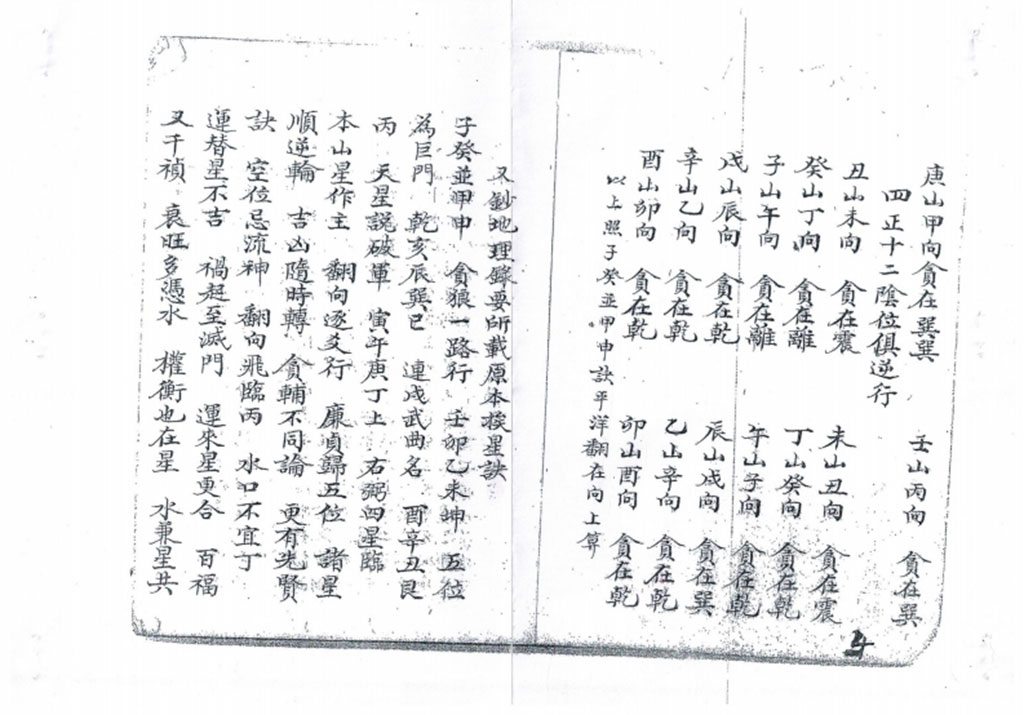 庚山甲向貪在巽巽　壬山丙向　貪在巽
四正十二陰位俱逆行
丑山未向　貪在震　未山丑向　貪在震
癸山丁向　貪在離　丁山癸向　貪在乾
子山午向　貪在離　午山子向　貪在乾
戌山辰向　貪在乾　辰山戌向　貪在巽
辛山乙向　貪在乾　乙山辛向　貪在乾
酉山卯向　貪在乾　卯山酉向　貪在乾
以上照子癸並甲申訣平洋翻在向上算
4
又鈔地理辟要所載原本挨星訣
子癸並甲申　貪狼一路行　壬卯乙未坤　五位
為巨門　乾亥辰巽巳　連戌武曲名　酉辛丑艮
丙　天星說破軍　寅午庚丁上　右弼四星臨
本山星作主　翻向逐爻行　廉貞歸五位　諸星
順逆輪　吉凶隨時轉　貪輔不同論　更有先賢
訣　空位忌流神　翻向飛臨丙　水口不宜丁
運替星不吉　禍起至滅門　運來星更合　百福
又千禎　衰旺多憑水　權衡也在星　水兼星共